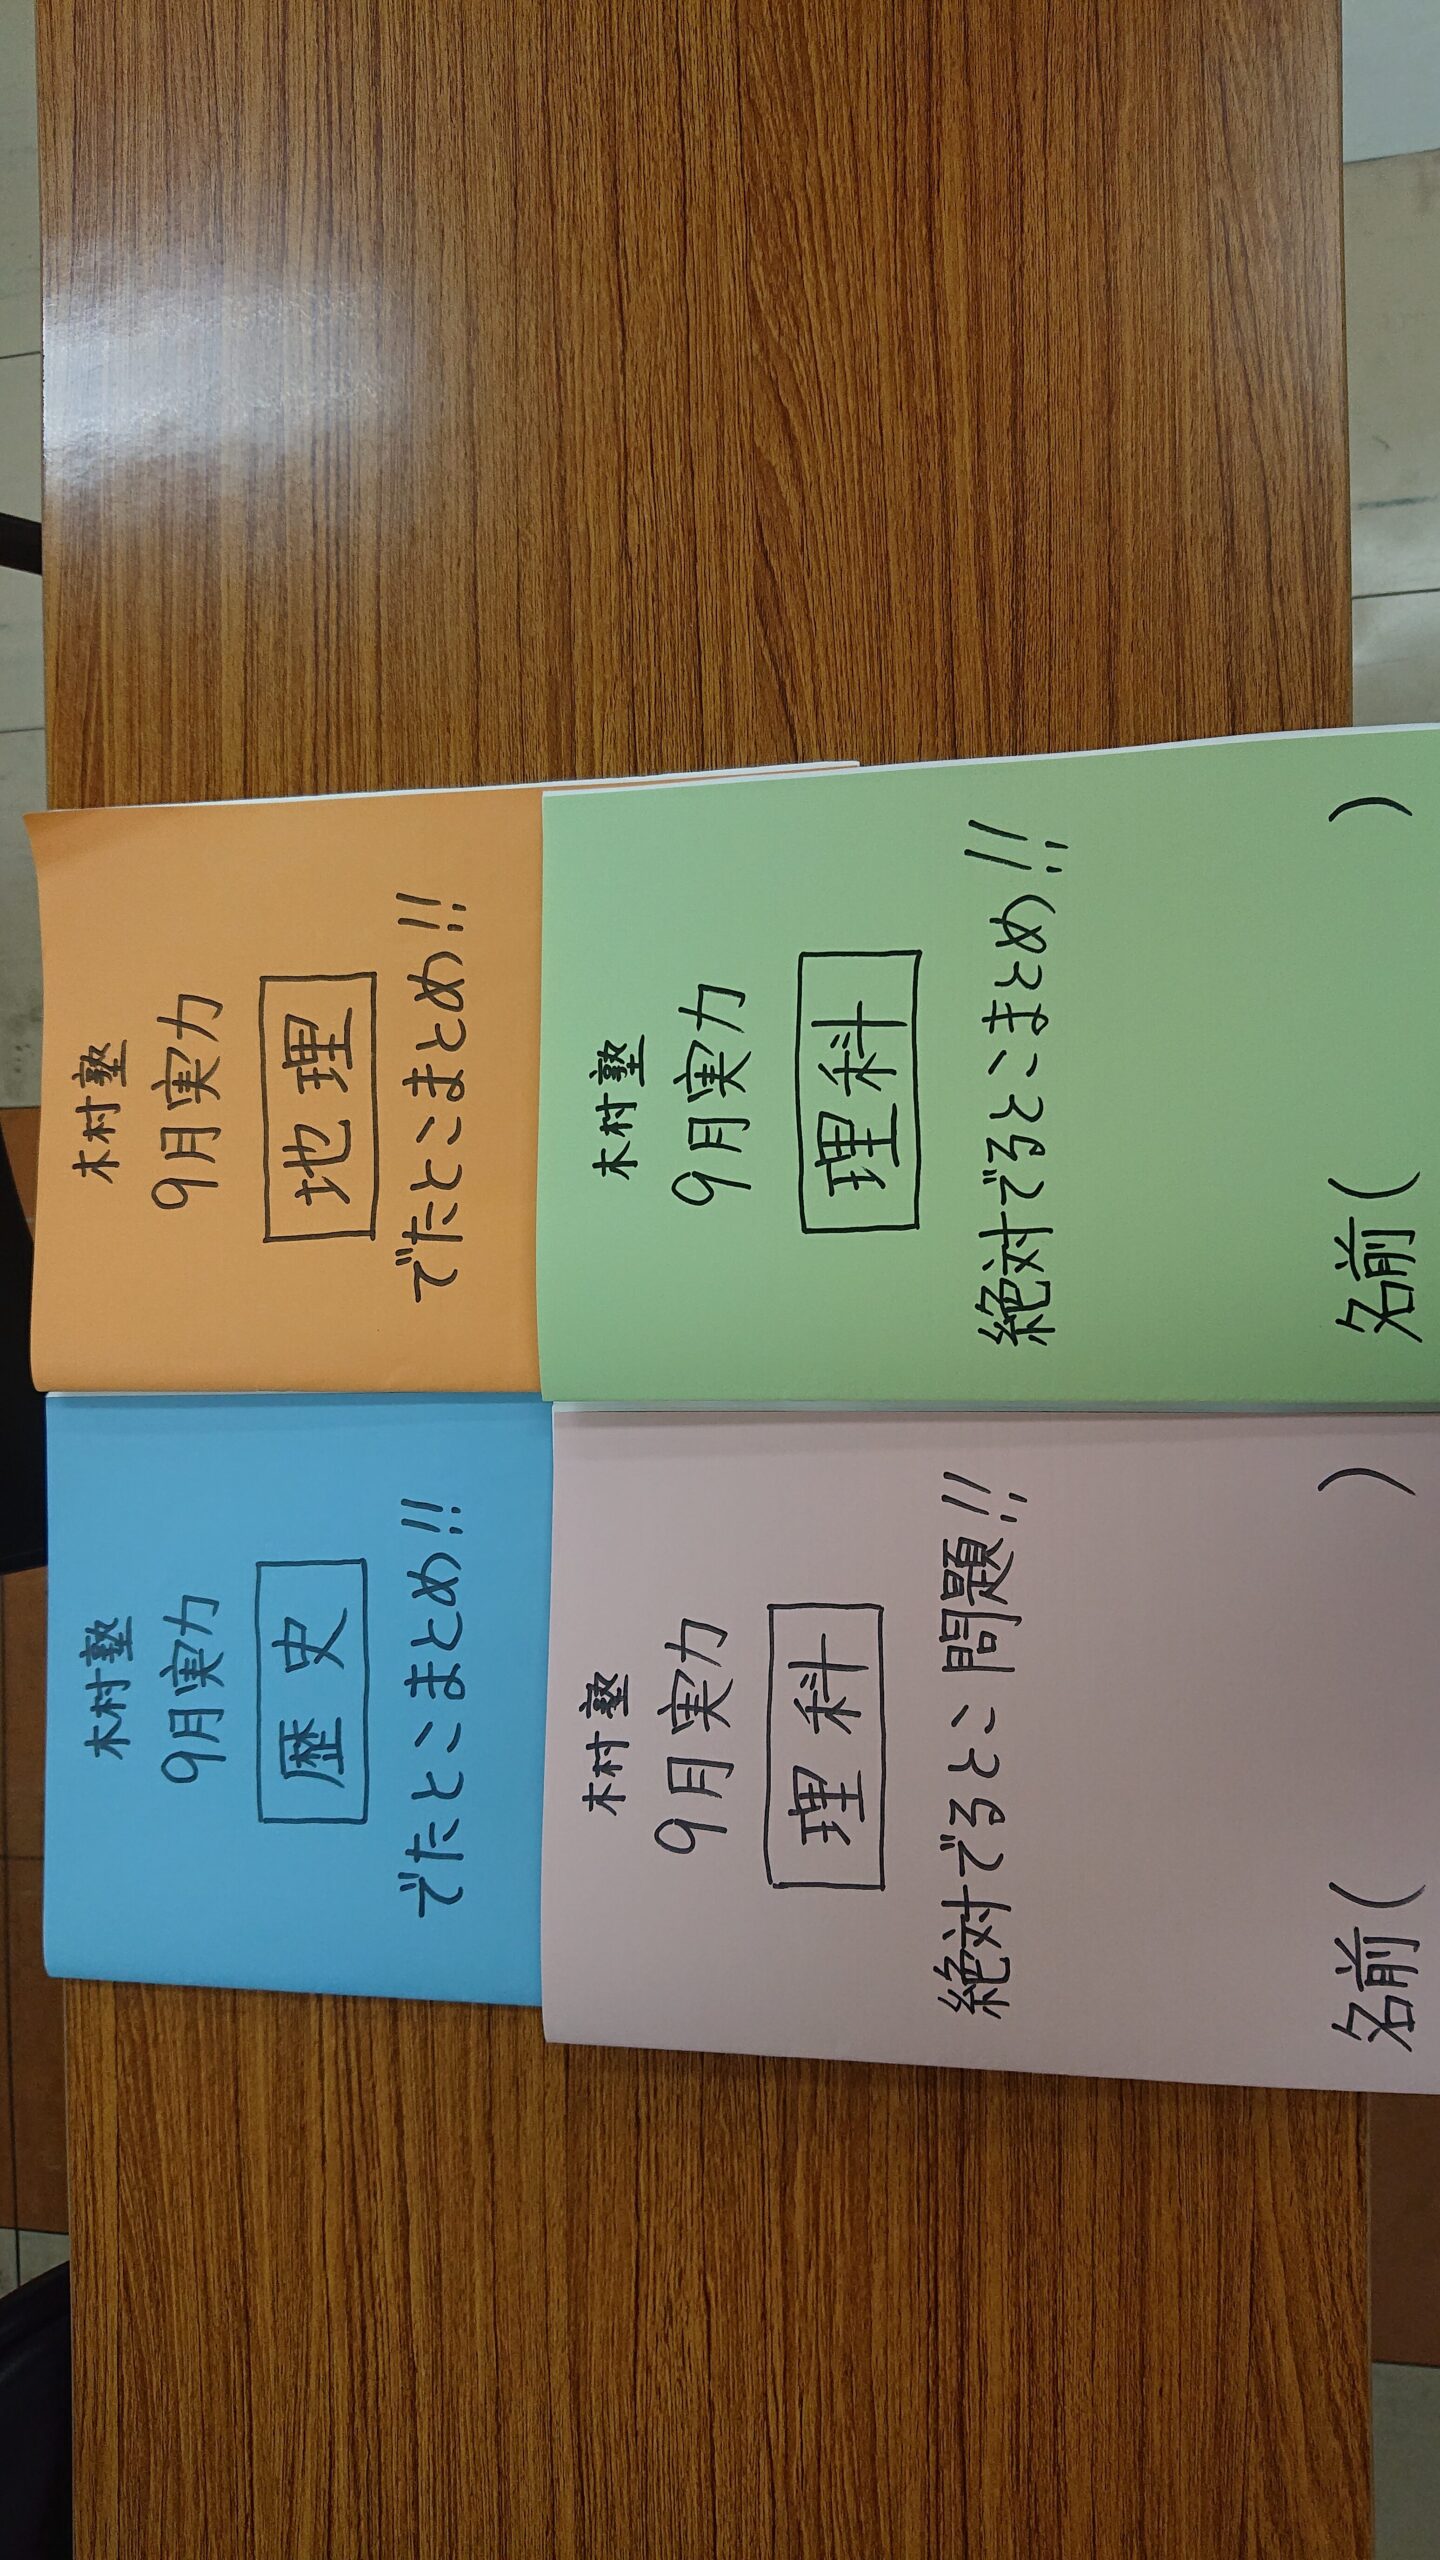 木村塾
9月実力
歴史
でたとこまとめ!!
木村塾
9月実力
地理
でたとこまとめ!!
木村塾
9月実力
理科
絶対でるとこ問題!!
名前( )
木村塾
9月実力
理科
絶対でるとこまとめ!!
名前( )